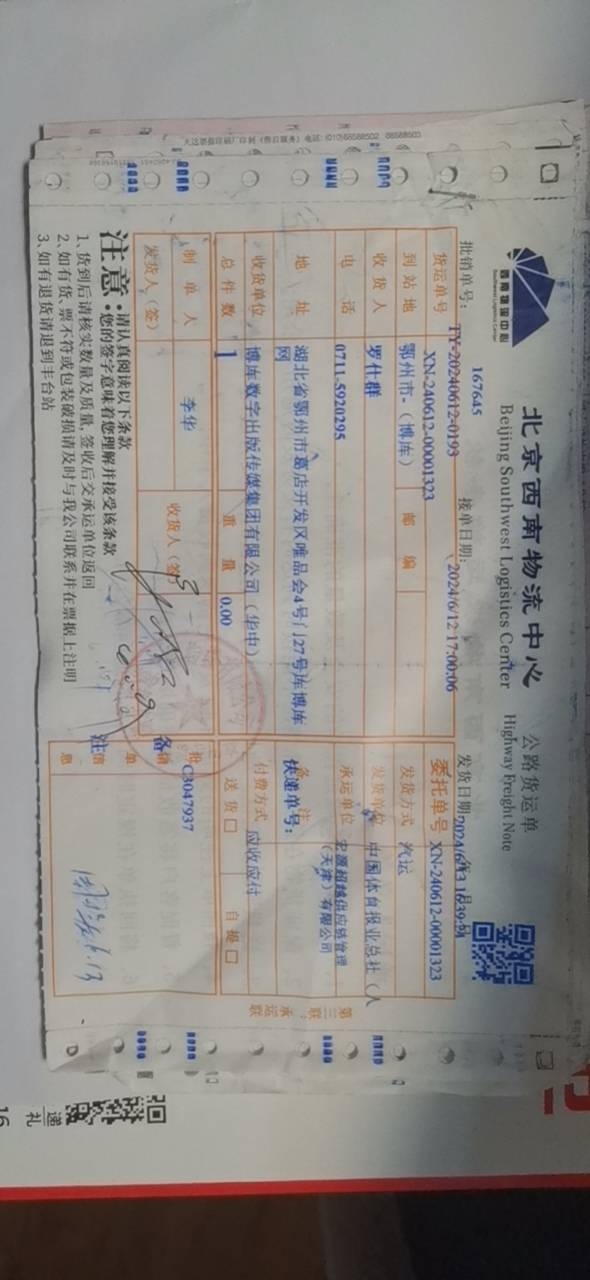 大达票据印刷厂印制(售后服务) 电话: (010)68588502 68588503
西南物流中心
Southwest Logistics Center
北京西南物流中心
Beijing Southwest Logistics Center
公路货运单
Highway Freight Note
167645
批销单号: TY-20240612-0193
接单日期: 2024/6/12 17:00:06
发货日期
货运单号 XN-240612-00001323
委托单号 XN-240612-00001323
到站地 鄂州市-(博库) 邮编
发货方式 汽运
收货人 罗仕群
发货单位 中国体育报业总社(人
电话 0711-5920295
承运单位 宏源超越供应链管理
(天津)有限公司
地址 湖北省鄂州市葛店开发区唯品会4号门27号库博库
网
备注
快递单号:
收货单位 博库数字出版传媒集团有限公司(华中)
付费方式 应收应付
总件数 1 重量 0.00
送货 □ 自提 □
制单人 李华
收货人(签)
发货人(签)
批销单信息
C3047937
备注
第三联:承运联
注意
·请认真阅读以下条款
·您的签字意味着您理解并接受该条款
1、货到后请核实数量及质量,签收后交承运单位返回
2、如有货、票不符或包装破损请及时与我公司联系并在票据上注明
3、如有退货请退到丰台站
递
礼